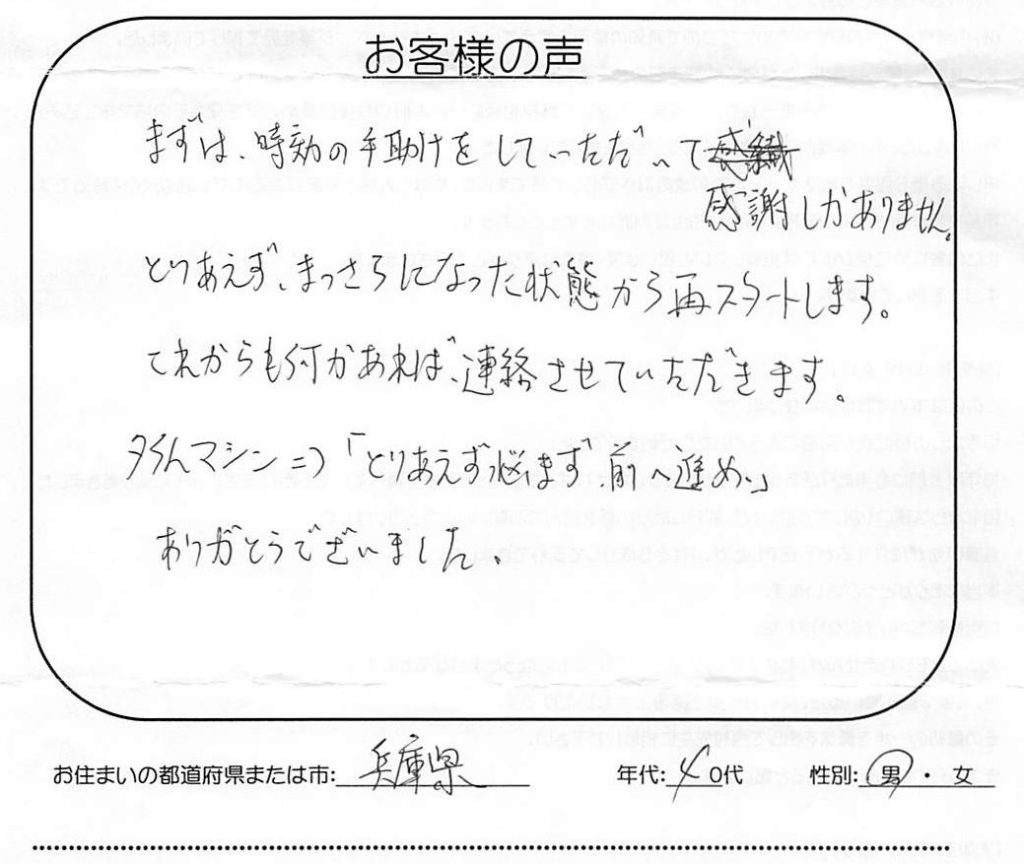 お客様の声
まずは、時効の手助けをしていただいて
感謝しかありません。
とりあえず、まっさらになった状態から再スタートします。
これからも何かあれば、連絡させていただきます。
マシン⇒「とりあえず悩まず前へ進め」
ありがとうございました。
お住まいの都道府県または市: 兵庫県 年代: 40代 性別: 男・女